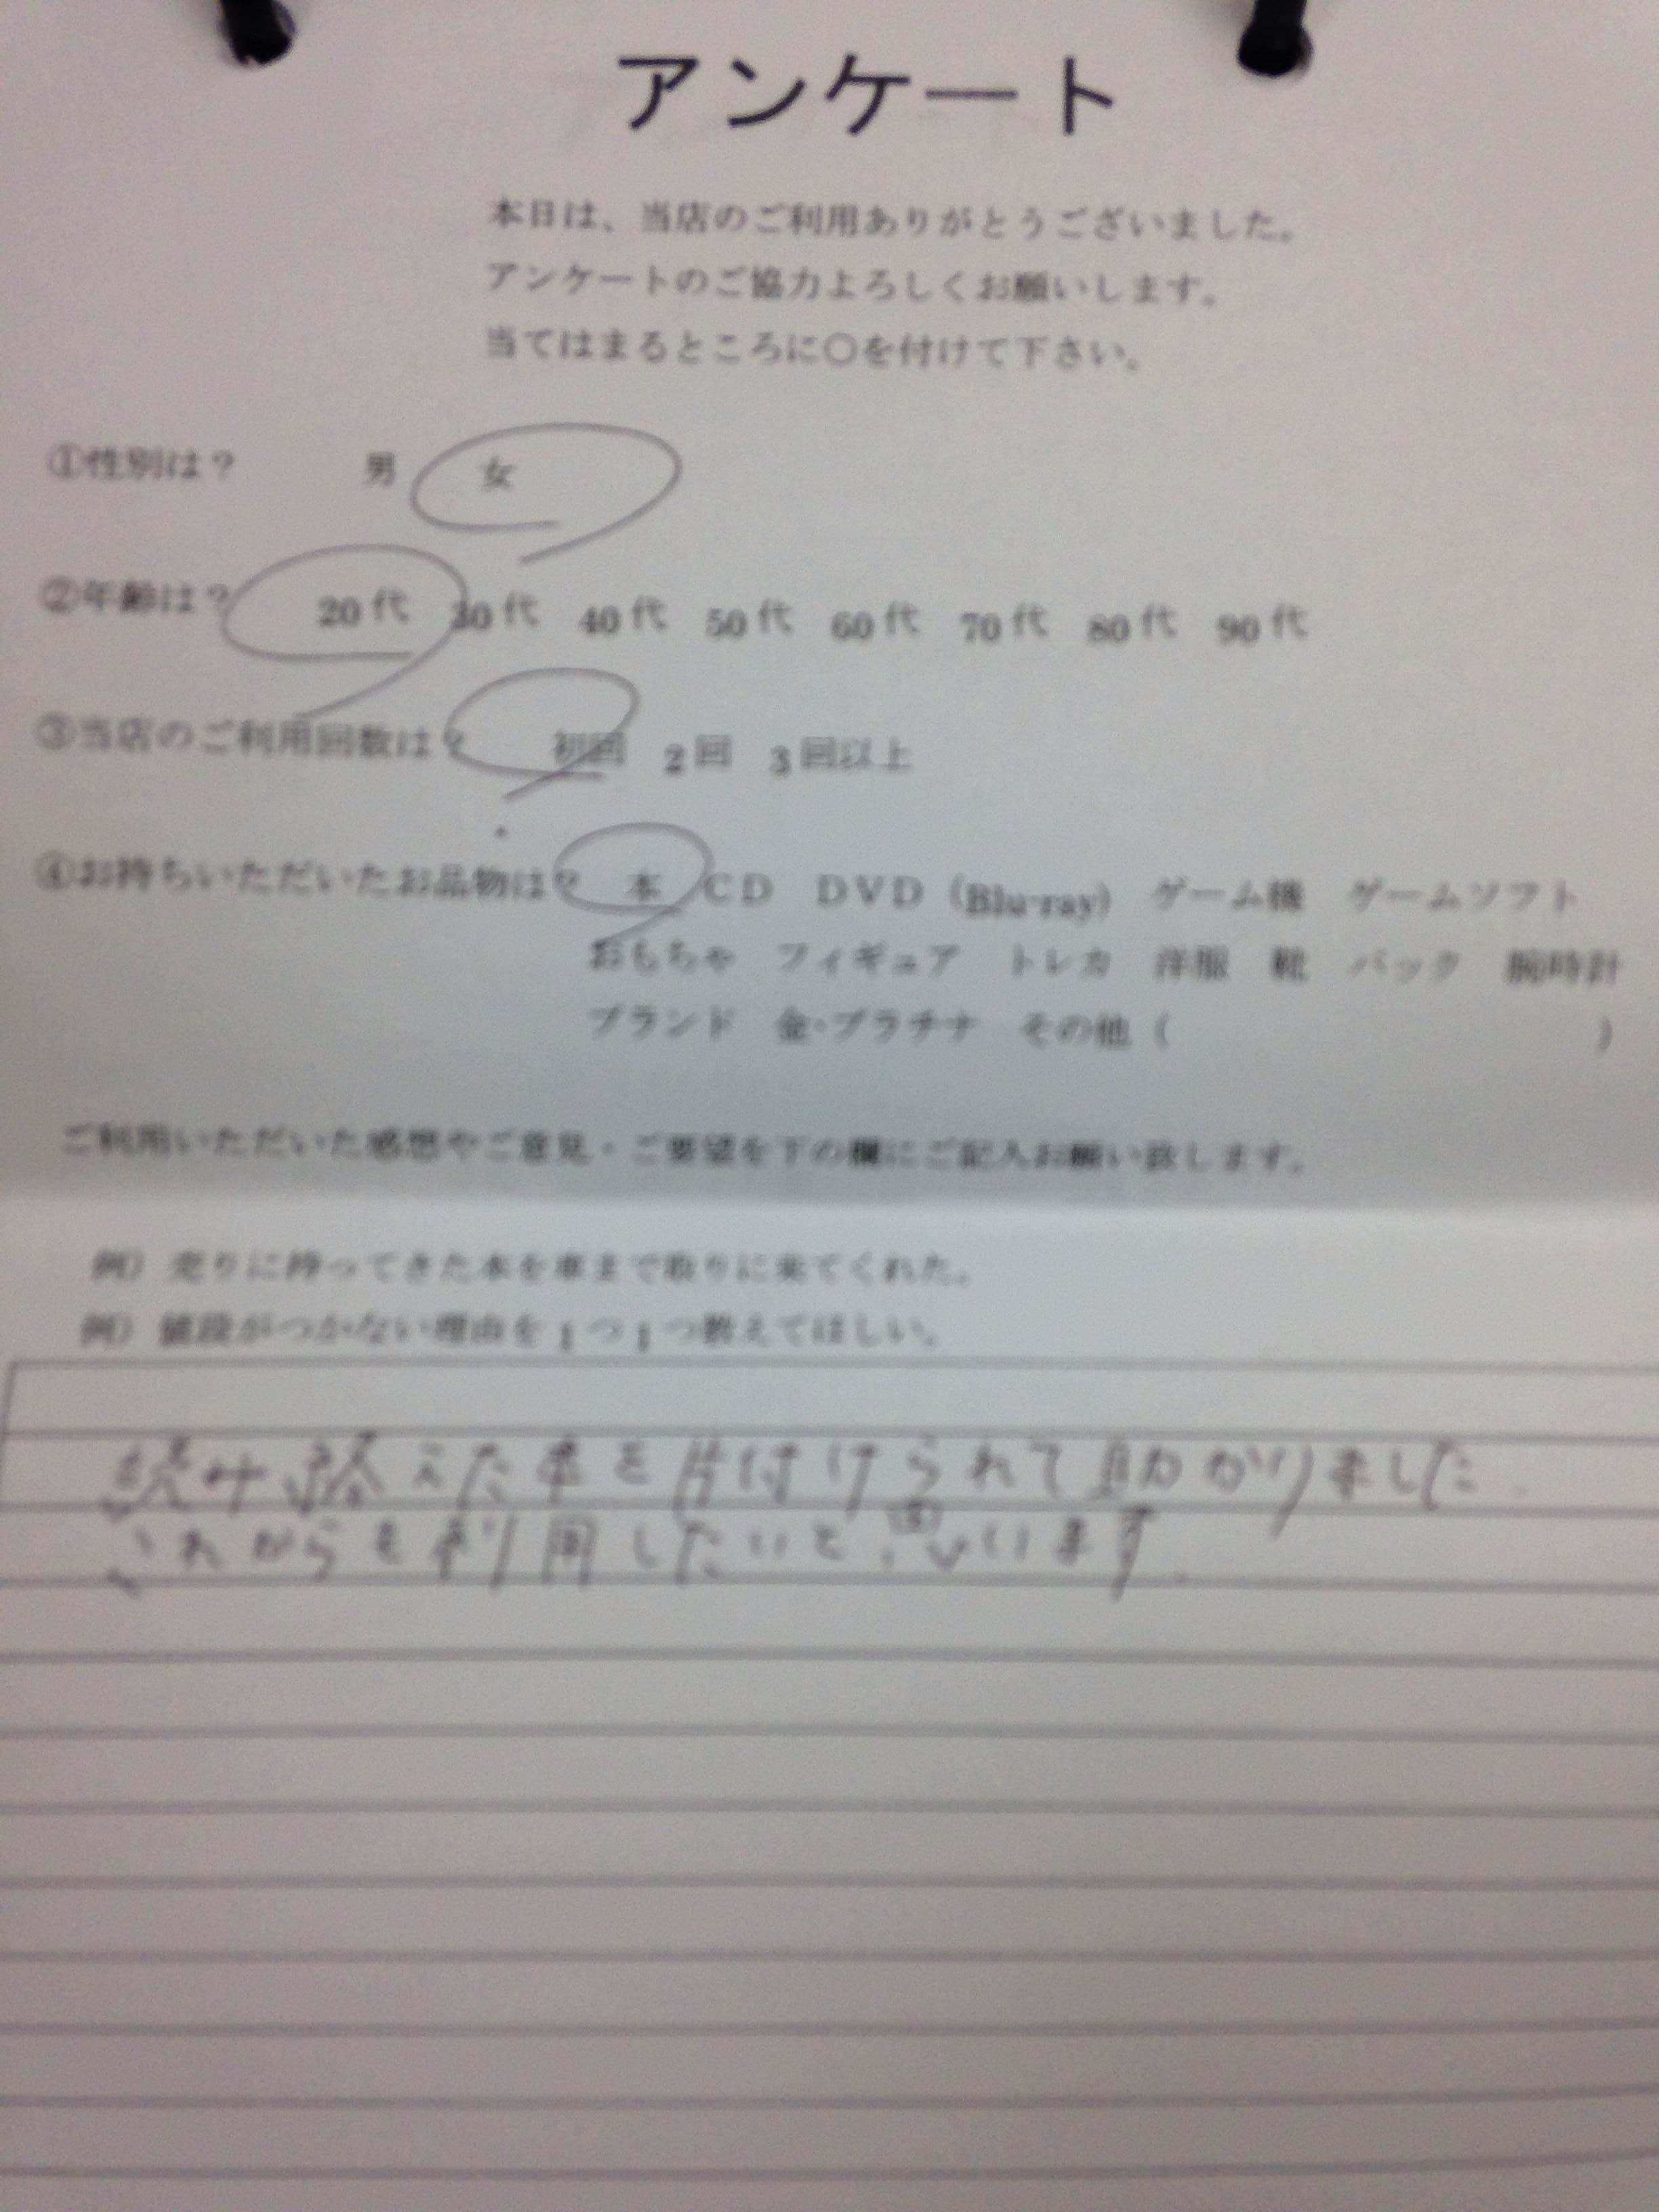 アンケート
本日は、当店のご利用ありがとうございました。
アンケートのご協力よろしくお願いします。
当てはまるところに〇を付けて下さい。
①性別は? 男 女
②年齢は? 20代 30代 40代 50代 60代 70代 80代 90代
③当店のご利用回数は? 初回 2回 3回以上
④お持ちいただいたお品物は? 本 CD DVD (Blu-ray) ゲーム機 ゲームソフト
おもちゃ フィギュア トレカ 洋服 靴 バック 腕時計
ブランド 金・プラチナ その他 ( )
ご利用いただいた感想やご意見・ご要望を下の欄にご記入お願い致します。
例) 売りに持ってきた本を車まで取りに来てくれた。
例) 値段がつかない理由を1つ1つ教えてほしい。
読み終えた本を片付けられて助かりました.
これからも利用したいと思います.